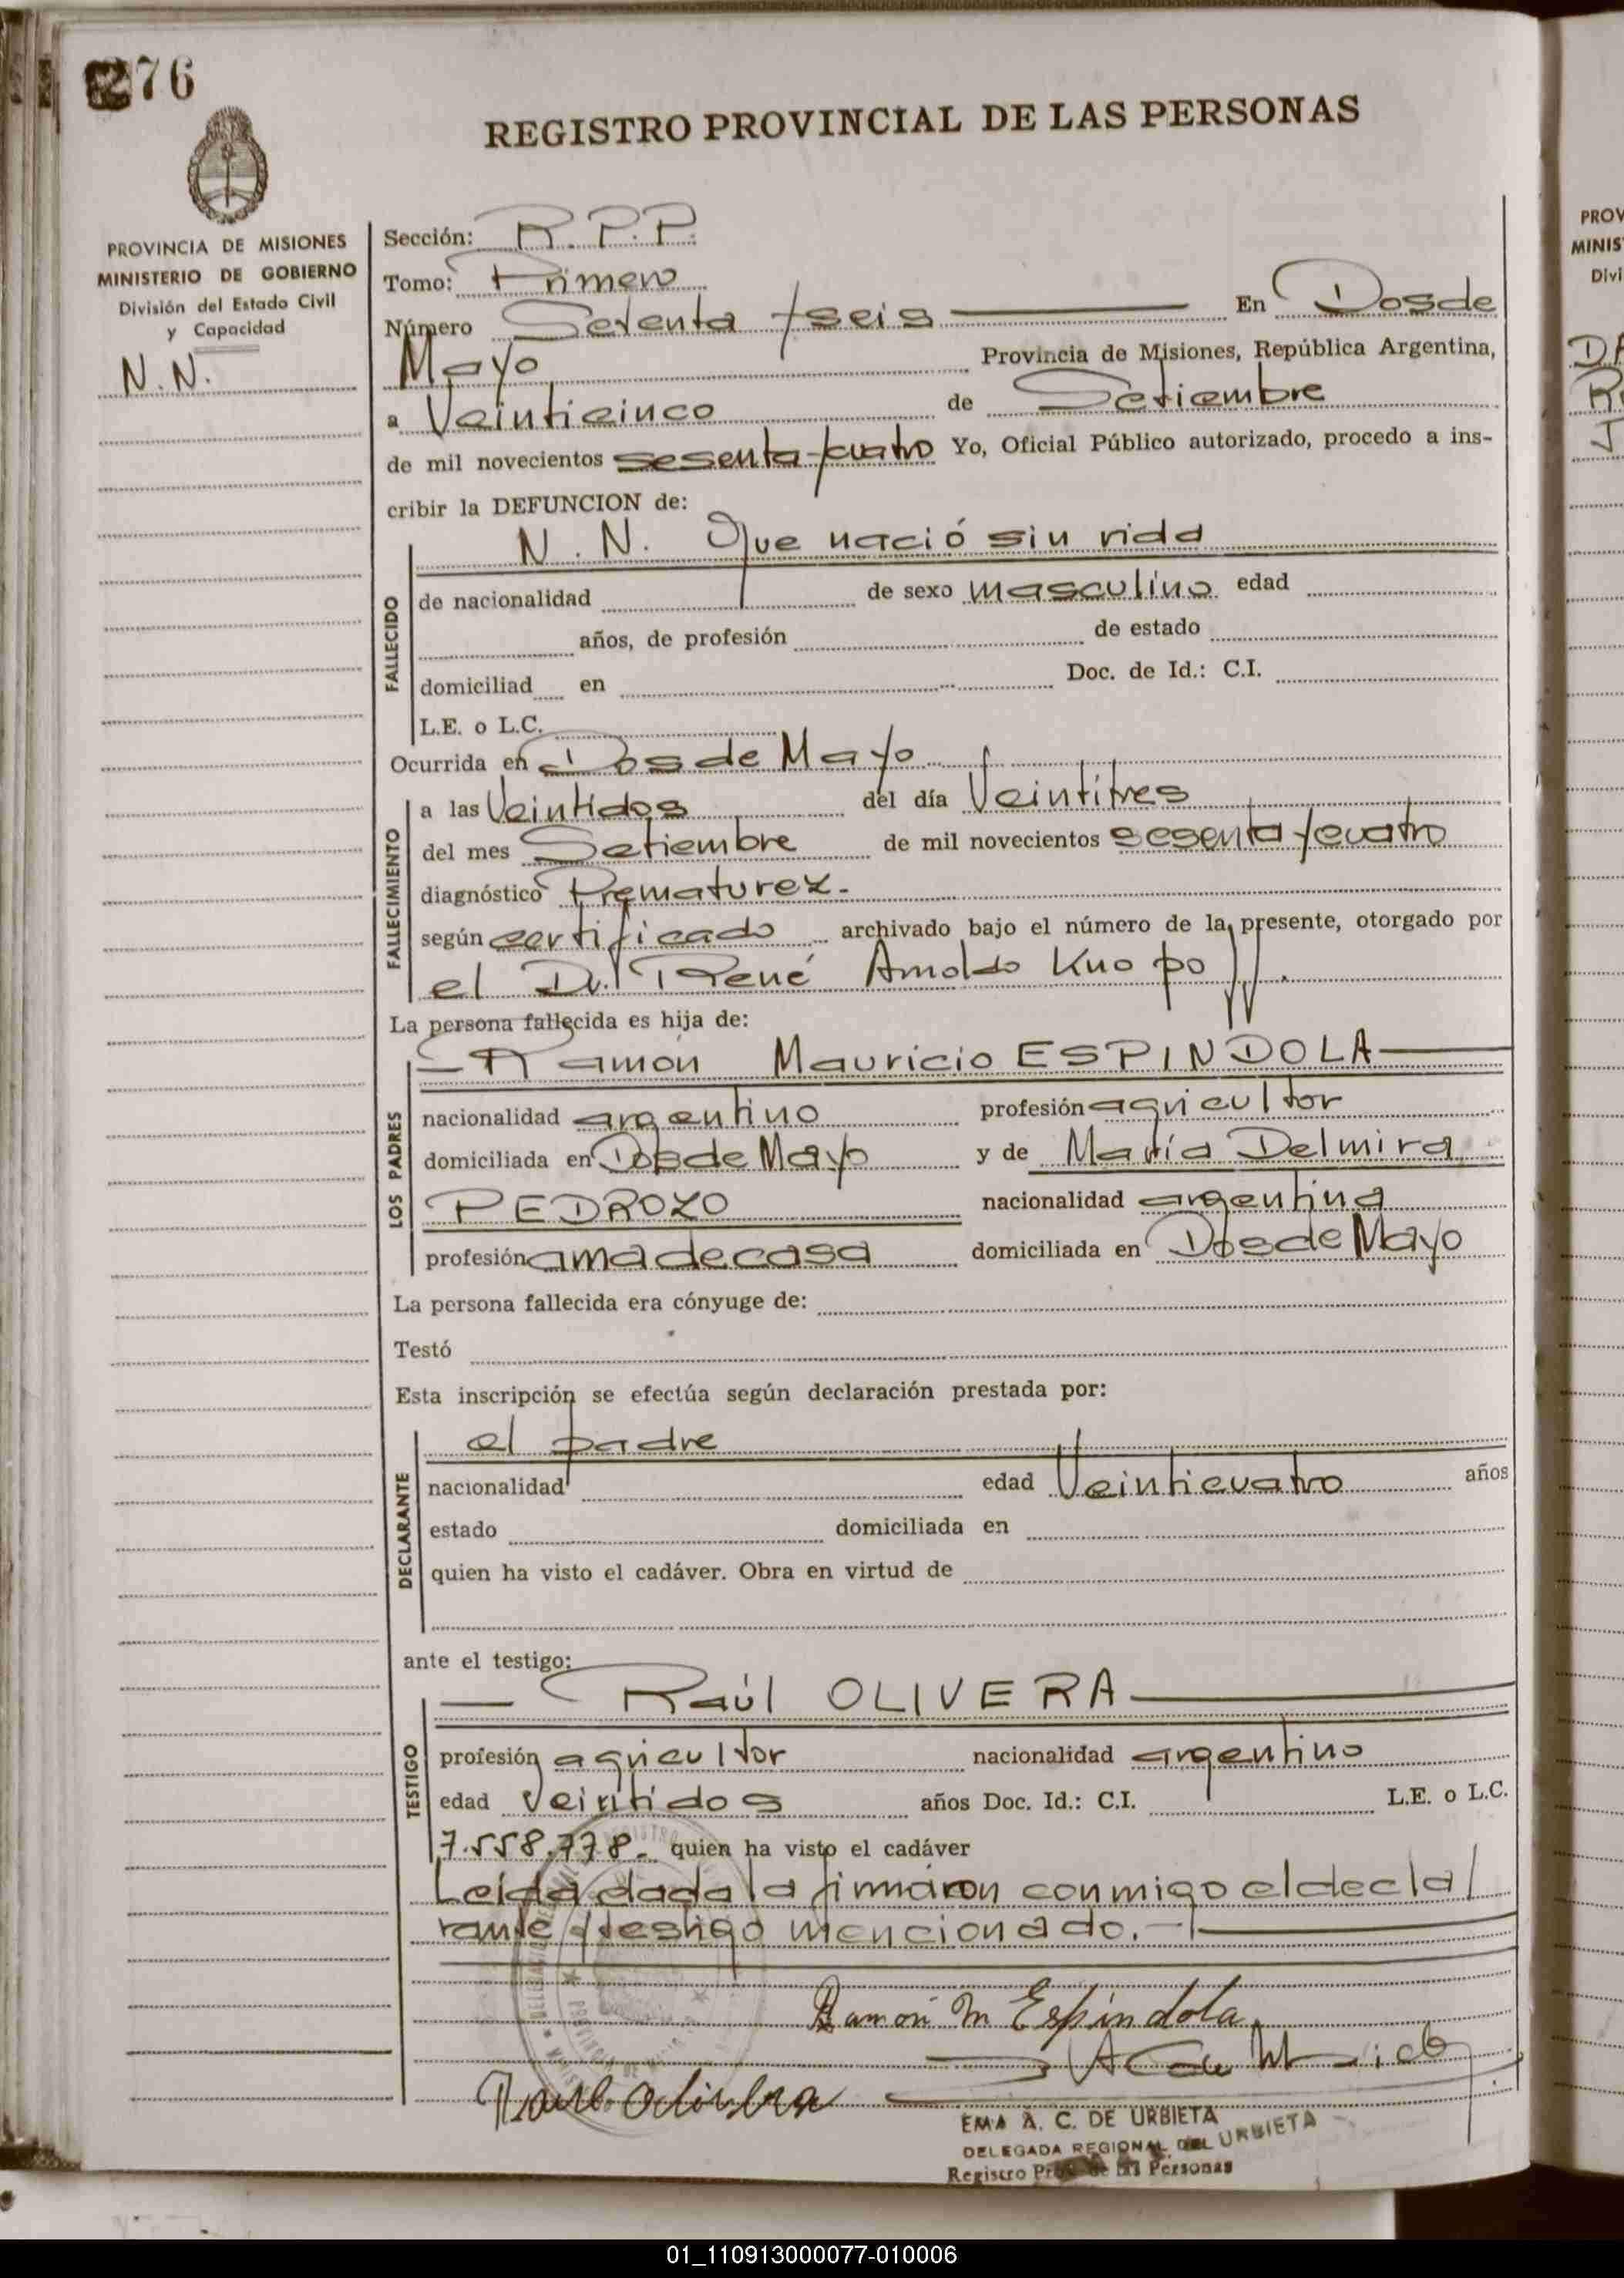 76
REGISTRO PROVINCIAL DE LAS PERSONAS
PROVINCIA DE MISIONES
MINISTERIO DE GOBIERNO
División del Estado Civil
y Capacidad
N.N.
Sección: R.P.P.
Tomo: Primero
Número Setenta y seis En Dos de
Mayo Provincia de Misiones, República Argentina,
a Veinticinco de Setiembre
de mil novecientos sesenta y cuatro Yo, Oficial Público autorizado, procedo a ins-
cribir la DEFUNCION de:
N.N. Que nació sin vida
FALLECIDO
de nacionalidad de sexo masculino edad
años, de profesión de estado
domiciliad en Doc. de Id.: C.I.
L.E. o L.C.
Ocurrida en Dos de Mayo
FALLECIMIENTO
a las Veintidos del día Veintitres
del mes Setiembre de mil novecientos sesenta y cuatro
diagnóstico Prematurez.
según certificado archivado bajo el número de la presente, otorgado por
el Dr. René Arnoldo Knopoff.
La persona fallecida es hija de:
LOS PADRES
Ramón Mauricio ESPINDOLA
nacionalidad argentino profesión agricultor
domiciliada en Dos de Mayo y de María Delmira
PEDROZO nacionalidad argentina
profesión ama de casa domiciliada en Dos de Mayo
La persona fallecida era cónyuge de:
Testó
Esta inscripción se efectúa según declaración prestada por:
DECLARANTE
el padre
nacionalidad edad Veinticuatro años
estado domiciliada en
quien ha visto el cadáver. Obra en virtud de
ante el testigo:
TESTIGO
Raúl OLIVERA
profesión agricultor nacionalidad argentino
edad Veintidos años Doc. Id.: C.I. L.E. o L.C.
7.558.778. quien ha visto el cadáver
Leida dada la firmaron conmigo el decla/
rante y testigo mencionado.-
Ramón M Espindola
Raul Olivera
EMA A. C. DE URBIETA
DELEGADA REGIONAL DEL URBIETA
Registro de las Personas
PROV
MINIS
Divi
01_110913000077-010006